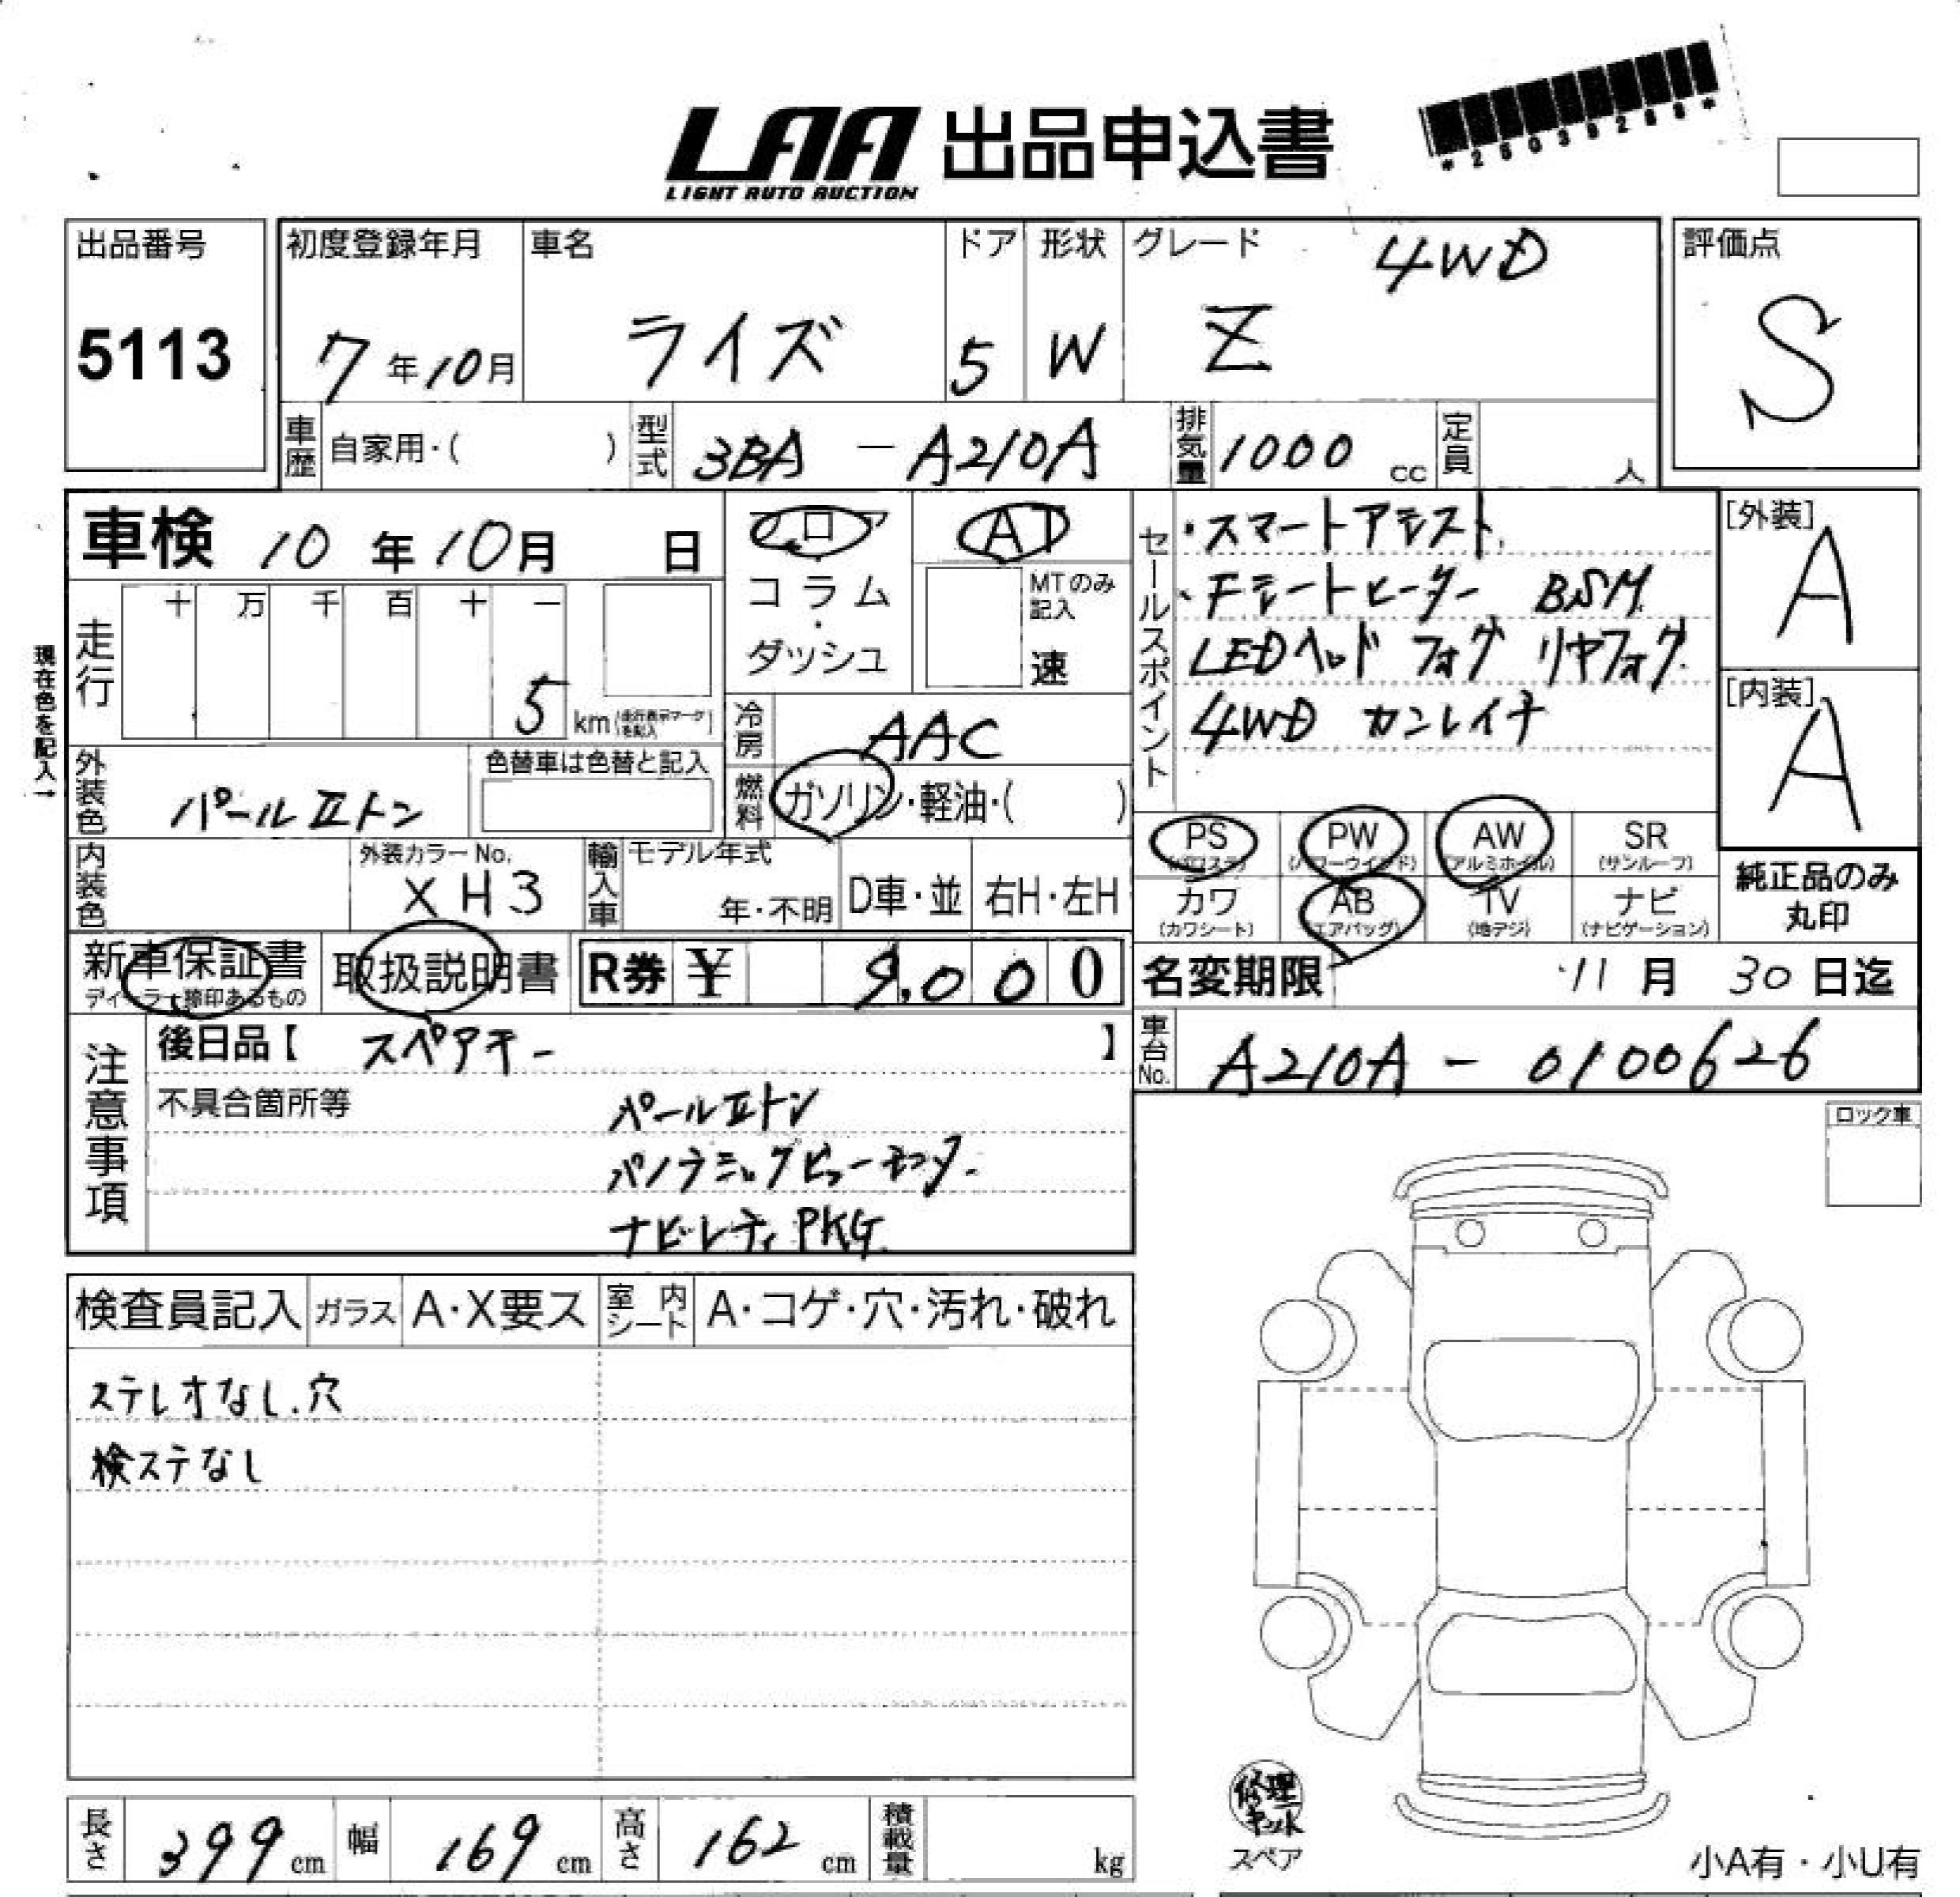 LAA 出品申込書
LIGHT AUTO AUCTION
出品番号
5113
初度登録年月
7年10月
車名
ライズ
ドア
5
形状
W
グレード
4WD
Z
評価点
S
車歴 自家用・( )
型式 3BA - A210A
排気量 1000 cc
定員 人
車検 10年10月 日
走行
十 万 千 百 十 一
5 km(走行表示マークを記入)
現在色を記入→
フロア
コラム
・
ダッシュ
AT
MTのみ
記入
速
冷房 AAC
燃料 ガソリン・軽油・( )
セールスポイント
・スマートアシスト
・Fシートヒーター BSM
LEDヘッド フォグ リヤフォグ
4WD カンレイチ
[外装]
A
[内装]
A
外装色 パールⅡトン
色替車は色替と記入
内装色
外装カラーNo.
XH3
輸入車
モデル年式
年・不明
D車・並
右H・左H
PS
(パワステ)
PW
(パワーウインド)
AW
(アルミホイル)
SR
(サンルーフ)
カワ
(カワシート)
AB
(エアバッグ)
TV
(地デジ)
ナビ
(ナビゲーション)
純正品のみ
丸印
新車保証書
ディーラー捺印あるもの
取扱説明書
R券 ¥ 9,000
名変期限 11月 30日迄
車台No. A210A - 0100626
注意事項
後日品【 スペアキー 】
不具合箇所等
パールⅡトン
パノラミックビューモニター
ナビレディPKG
ロック車
検査員記入
ガラス A・X要ス
室内シート A・コゲ・穴・汚れ・破れ
ステレオなし.穴
検ステなし
修理
キット
スペア
長さ 399 cm
幅 169 cm
高さ 162 cm
積載量 kg
小A有・小U有